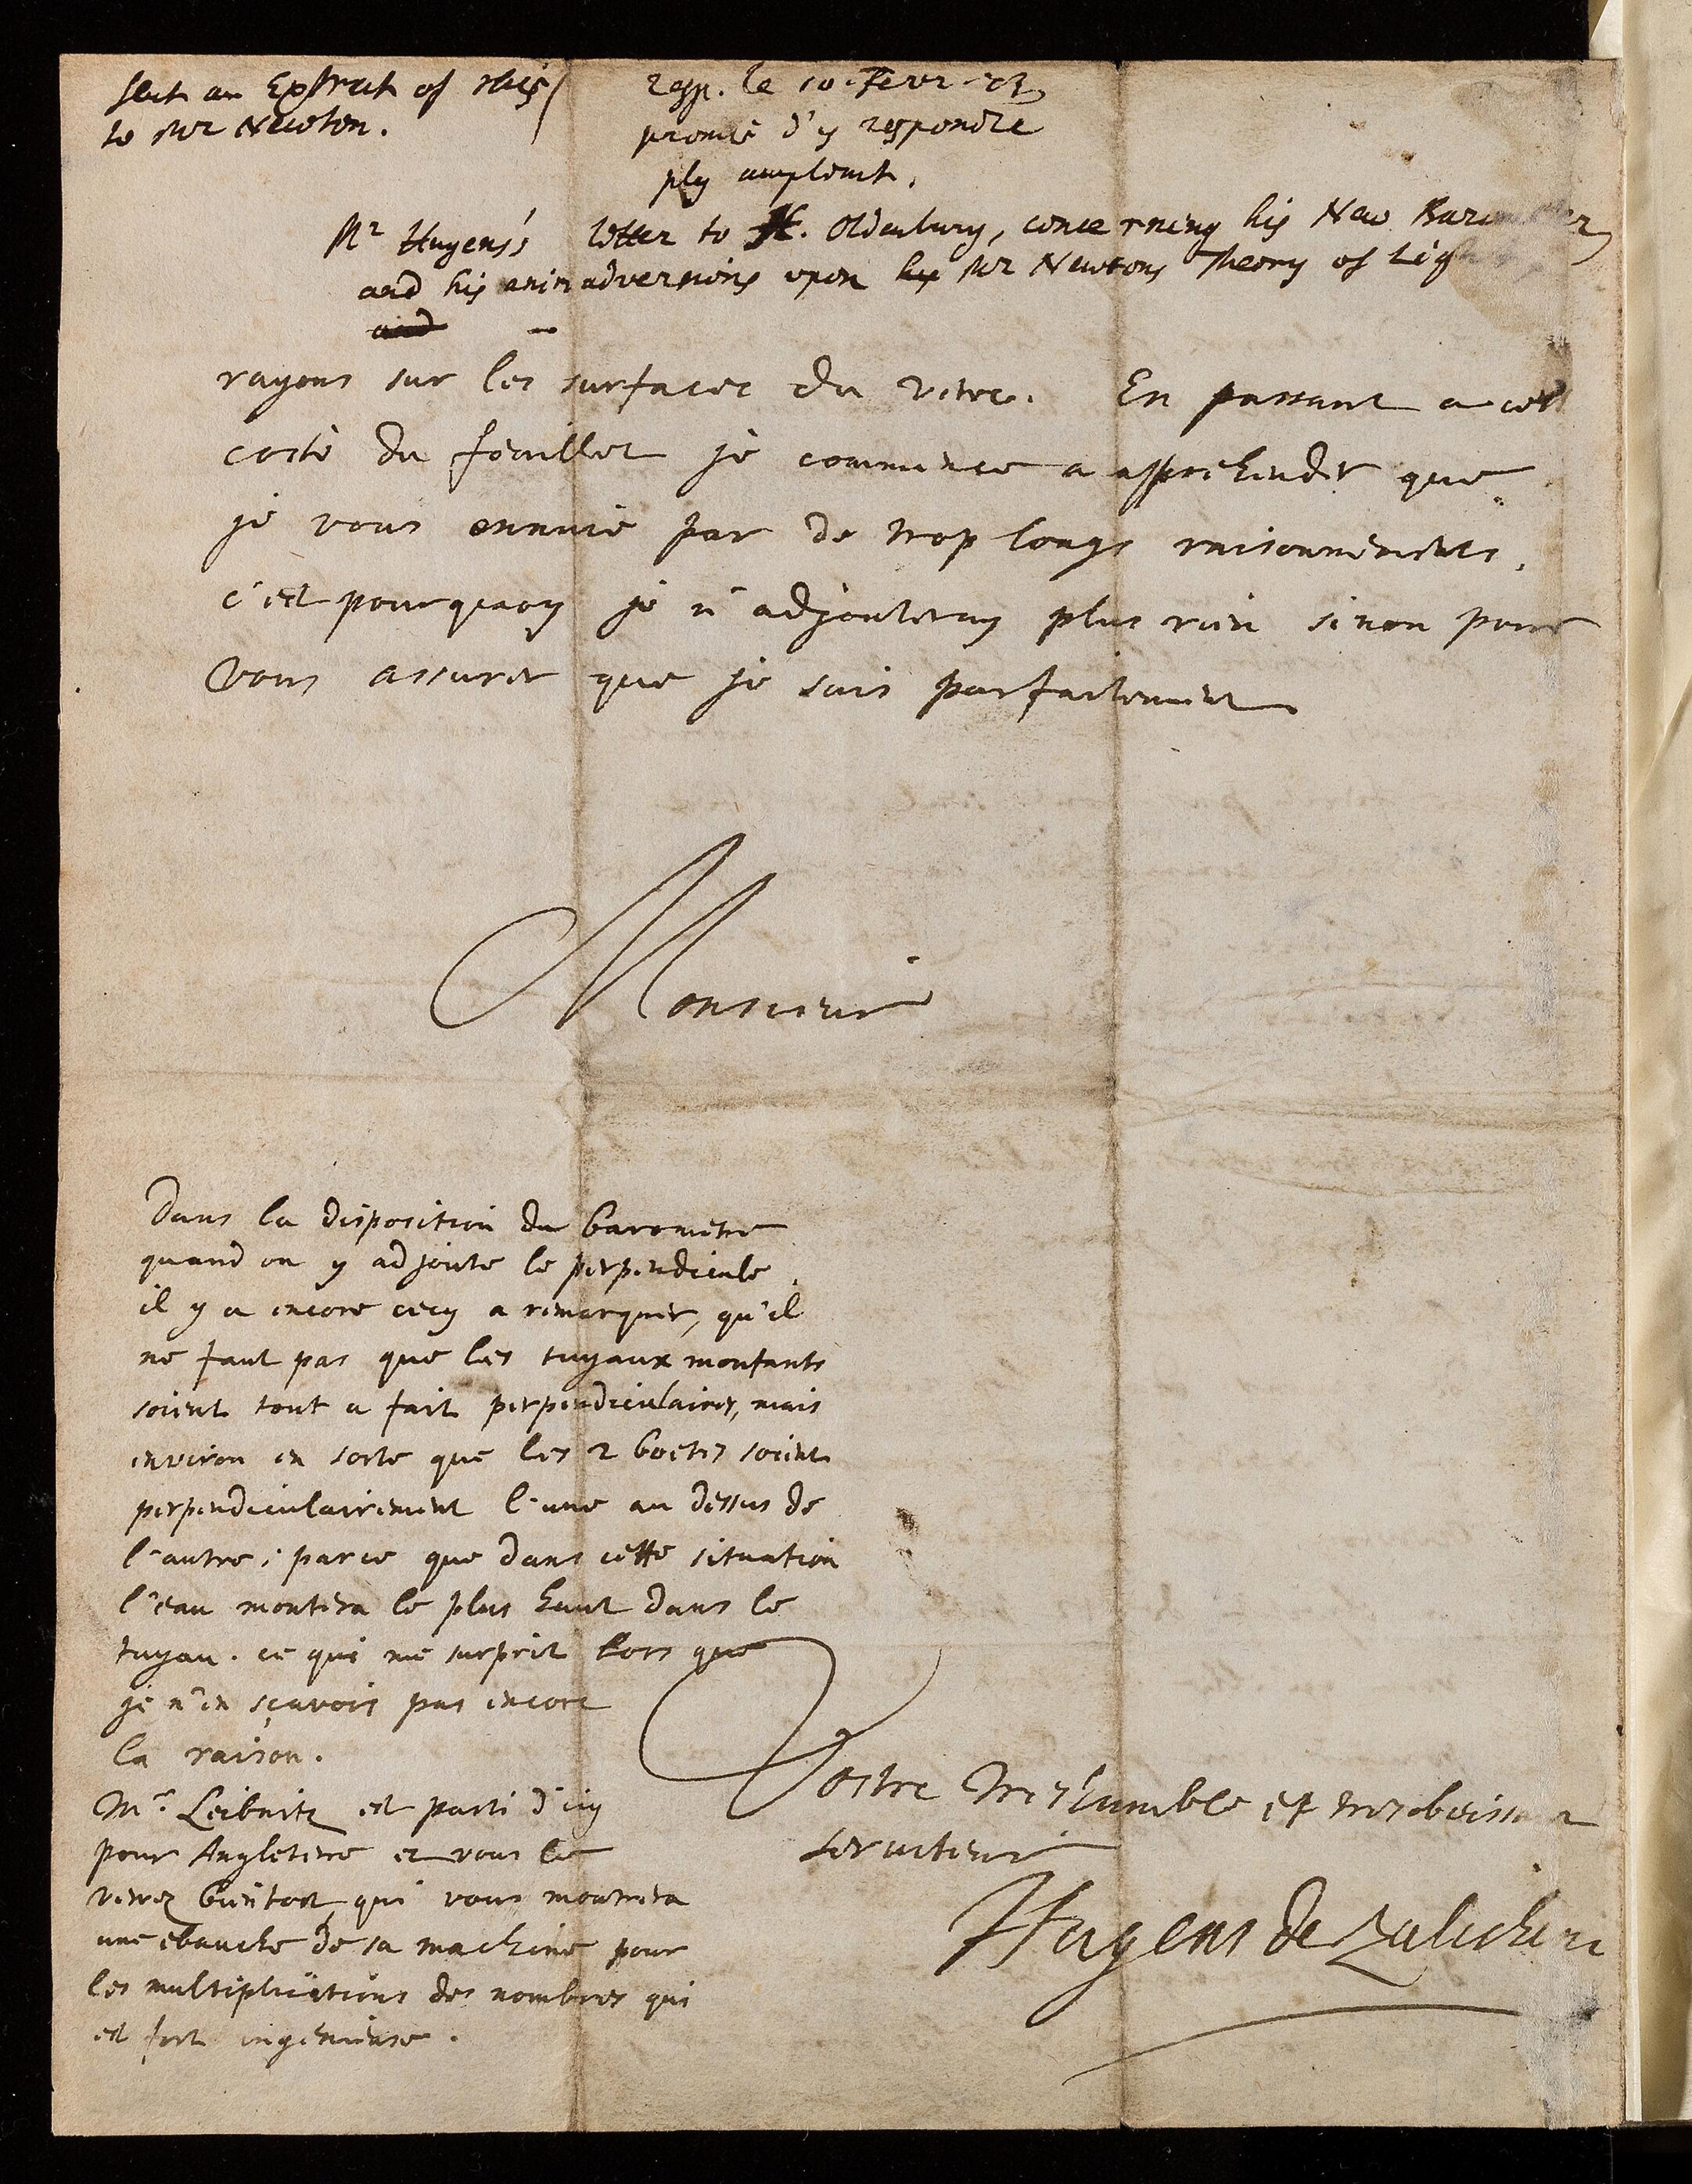 sent an Extract of this
to Mr Newton.
resp. le 10. Fevr
promis d'y respondre
plus amplemt.
Mr Hugens's letter to H. Oldenburg, concerning his New Barometer,
and his animadversions upon his Mr Newtons Theory of Light
and
rayons sur les surfaces du verre. En passant a cet
costè du feuillet je commence a apprehender que
je vous ennuie par de trop longs raisonnements.
c'est pourquoy je n'adjouteray plus rien sinon pour
vous assurer que je suis parfaitement
Monsieur
Dans la disposition du barometre
quand on y adjoute le perpendicule
il y a encore cecy a remarquer, qu'il
ne faut pas que les tuyaux montants
soient tout a fait perpendiculaires, mais
environ en sorte que les 2 boetes soient
perpendiculairement l'une au dessus de
l'autre; parce que dans cette situation
l'eau montera le plus haut dans le
tuyau. ce qui me surprit lors que
je n'en sçavois pas encore
la raison.
Mr. Leibnitz est parti d'icy
pour Angleterre et vous le
verrez bientost, qui vous montrera
une ebauche de sa machine pour
les multiplications des nombres qui
est fort ingenieuse.
Vostre treshumble et tresobeissant
serviteur
Hugens de Zulichem